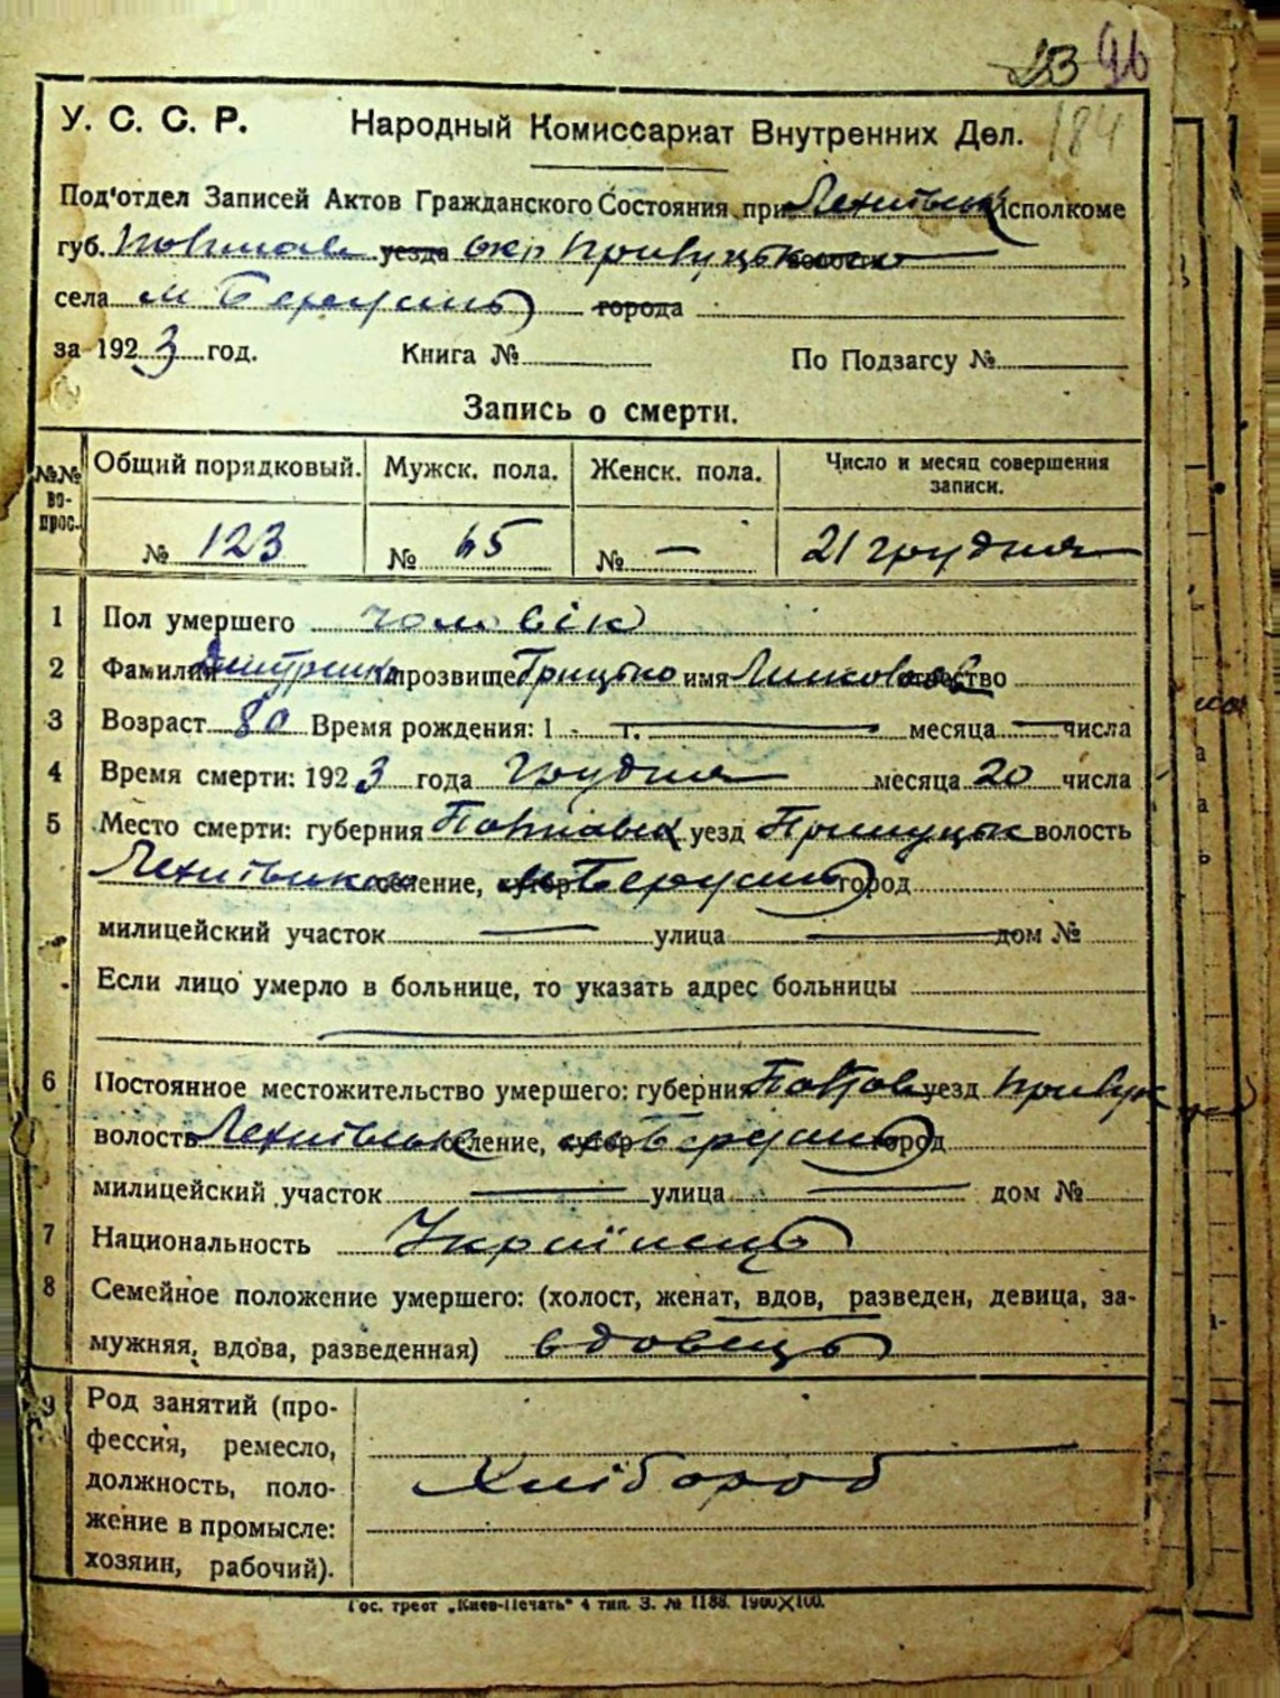 23 96
184
У. С. С. Р. Народный Комиссариат Внутренних Дел.
Под'отдел Записей Актов Гражданского Состояния при Исполкоме
губ. Полтав уезда окр Прилуцького
села м Березань города
за 1923 год. Книга № По Подзагсу №
Запись о смерти.
№№ во-прос. Общий порядковый. Мужск. пола. Женск. пола. Число и месяц совершения записи.
№ 123 № 65 № — 21 грудня
1 Пол умершего чоловік
2 Фамилия Дмитренко прозвище Грицько имя отчество
3 Возраст 80 Время рождения: 1 г. месяца числа
4 Время смерти: 1923 года грудня месяца 20 числа
5 Место смерти: губерния Полтавськ уезд Прилуцьк волость
селение, хутор город
милицейский участок — улица — дом №
Если лицо умерло в больнице, то указать адрес больницы
6 Постоянное местожительство умершего: губерния Полтав уезд Прилук
волость селение, хутор город
милицейский участок — улица — дом №
7 Национальность Українець
8 Семейное положение умершего: (холост, женат, вдов, разведен, девица, за-
мужняя, вдова, разведенная) вдовець
9 Род занятий (про-
фессия, ремесло,
должность, поло-
жение в промысле:
хозяин, рабочий).
Хлібороб
Гос. трест „Киев-Печать" 4 тип. З. № 1188. 1900×100.